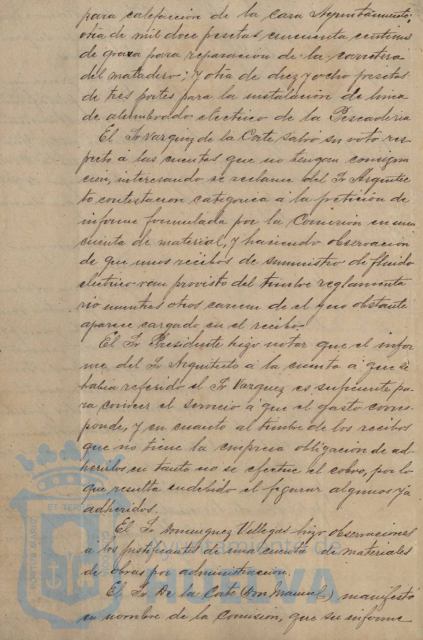 para calefaccion de la Casa Ayuntamiento;
otra de mil doce pesetas cincuenta centimos
de grava para reparacion de la carretera
del matadero; y otra de diez y ocho pesetas
de tres portes para la instalacion de linea
de alumbrado electrico de la Pescaderia
El Sr Vazquez de la Corte salvó su voto res-
pecto á las cuentas que no tengan consigna
cion, interesando se reclame del Sr Arquitec-
to contestacion categorica á la peticion de
informe formulada por la Comision en una
cuenta de material, y haciendo observacion
de que unos recibos de suministro de fluido
electrico van provisto del timbre reglamenta
rio mientras otros carecen de el y no obstante
aparece cargado en el recibo.
El Sr Presidente hizo notar que el infor-
me del Sr Arquitecto á la cuenta á que se
habia referido el Sr Vazquez es suficiente pa-
ra conocer el servicio á que el gasto corres-
ponde, y en cuanto al timbre de los recibos
que no tiene la empresa obligacion de ad-
herirlos en tanto no se efectue el cobro, por lo
que resulta indebido el figurar algunos ya
adheridos.
El Sr Dominguez Villegas hizo observaciones
á los justificantes de una cuenta de materiales
de obras por administracion.
El Sr De la Corte (Don Manuel) manifestó
en nombre de la Comision, que su informe
HUELVA